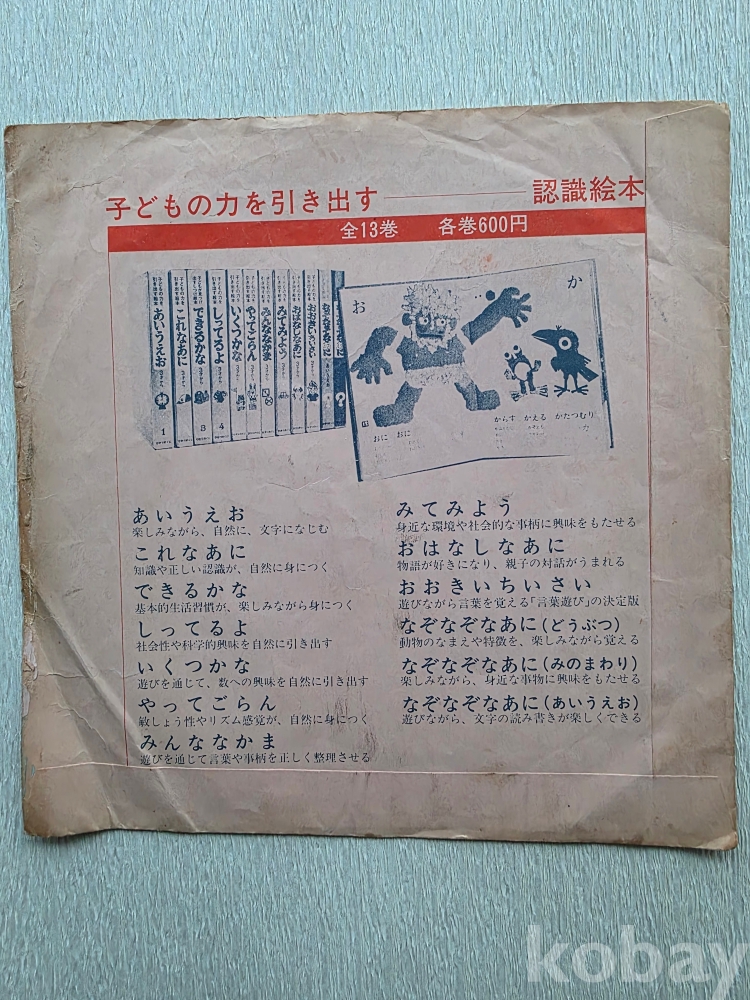 子どもの力を引き出す――認識絵本
全13巻 各巻600円
あいうえお
これなあに
できるかな
しってるよ
いくつかな
やってごらん
みんななかま
みてみよう
おはなしなあに
おおきいちいさい
1
3
4
?
お
か
おに おに
からす かえる かたつむり
あいうえお
楽しみながら、自然に、文字になじむ
これなあに
知識や正しい認識が、自然に身につく
できるかな
基本的生活習慣が、楽しみながら身につく
しってるよ
社会性や科学的興味を自然に引き出す
いくつかな
遊びを通じて、数への興味を自然に引き出す
やってごらん
敏しょう性やリズム感覚が、自然に身につく
みんななかま
遊びを通じて言葉や事柄を正しく整理させる
みてみよう
身近な環境や社会的な事柄に興味をもたせる
おはなしなあに
物語が好きになり、親子の対話がうまれる
おおきいちいさい
遊びながら言葉を覚える「言葉遊び」の決定版
なぞなぞなあに(どうぶつ)
動物のなまえや特徴を、楽しみながら覚える
なぞなぞなあに(みのまわり)
楽しみながら、身近な事物に興味をもたせる
なぞなぞなあに(あいうえお)
遊びながら、文字の読み書きが楽しくできる
kobay